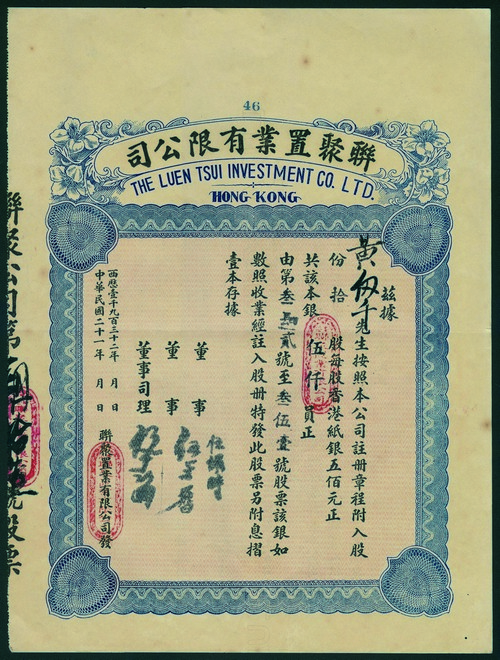 46
聯聚置業有限公司
THE LUEN TSUI INVESTMENT CO. LTD.
HONG KONG
茲據
黃 先生按照本公司註冊章程附入股
份拾 股每股香港紙銀五佰元正
共該本銀伍仟員正
由第叁肆貳號至叁伍壹號股票該銀如
數照收業經註入股册特發此股票另附息摺
壹本存據
董事
董事
董事司理
西歷壹千九百三十二年 月 日
中華民國二十一年 月 日
聯聚置業有限公司發
聯聚公司第 拾 號股票